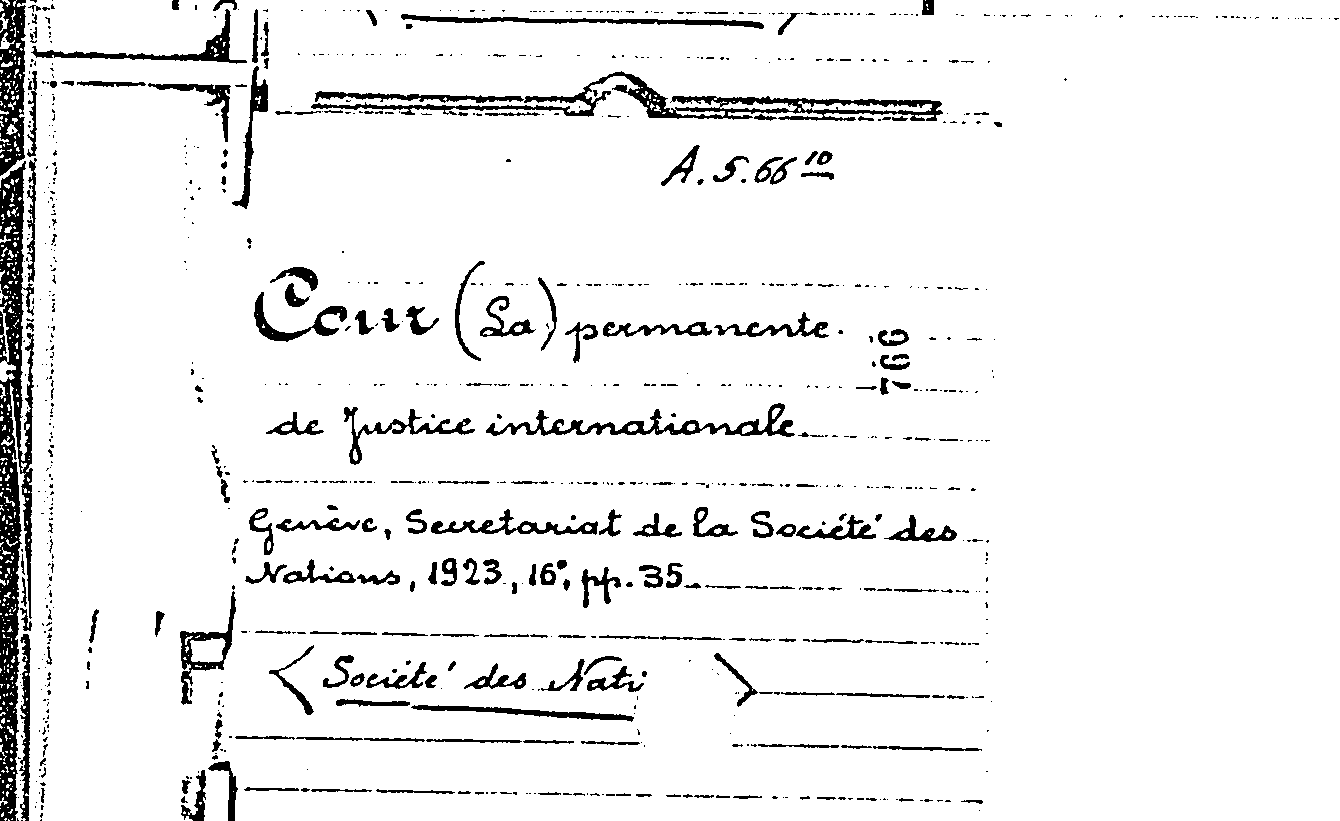 A. 5. 66 10
Cour (La) permanente.
766
de Justice internationale.
Genève, Secretariat de la Société des
Nations, 1923, 16°, pp. 35.
< Société des Nati >